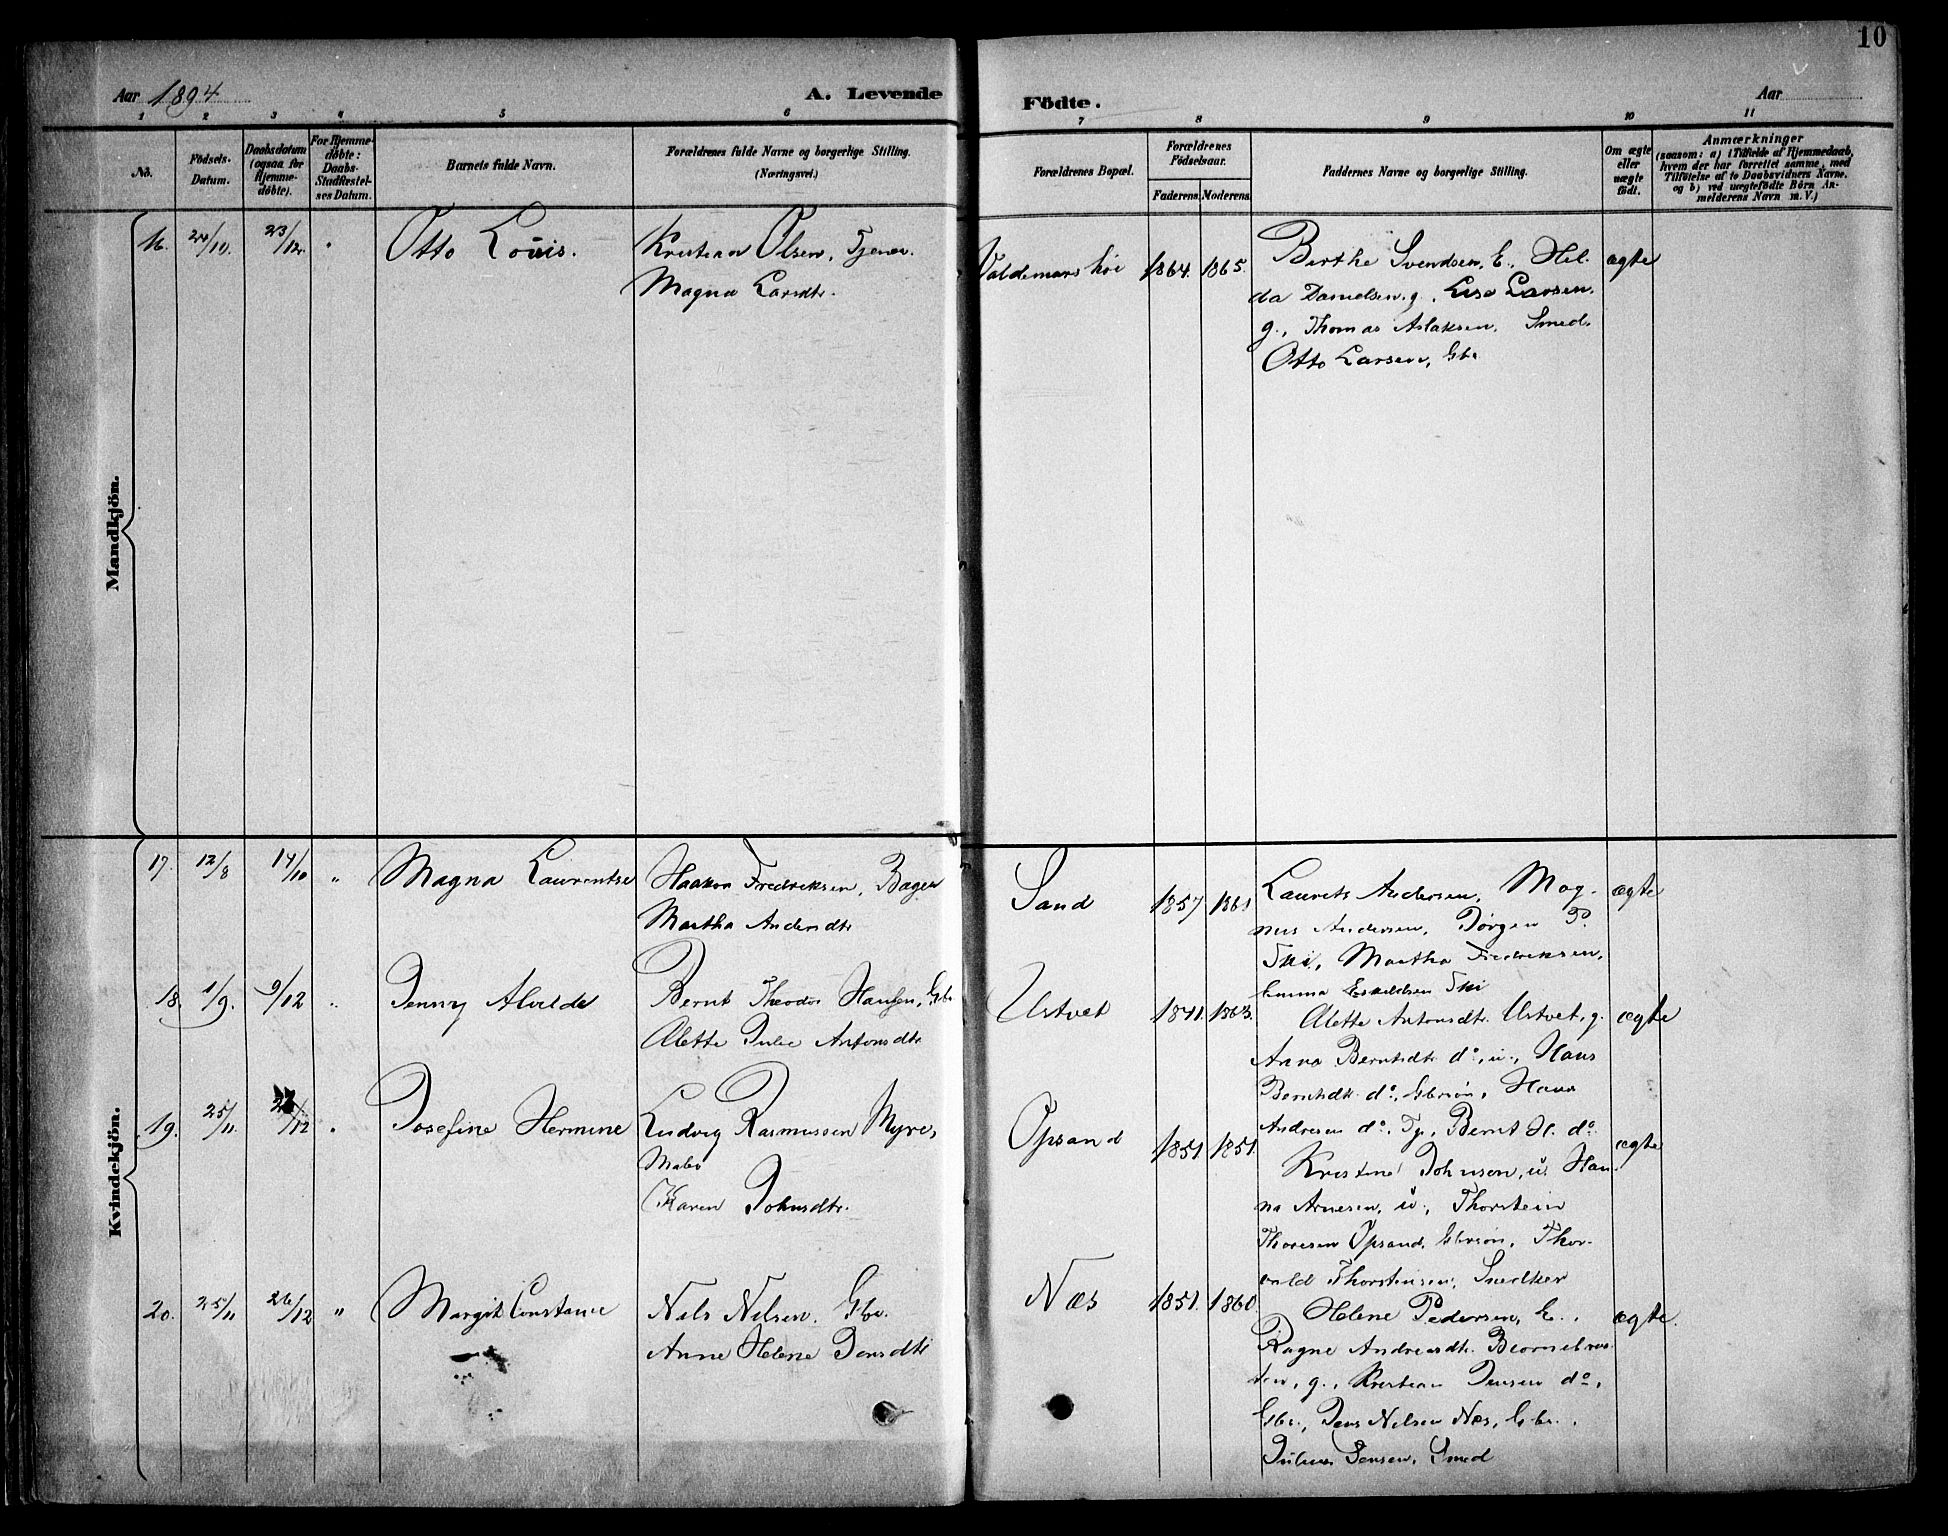 10
Aar 1894
A. Levende
Födte.
Aar
1 2 3 4 5 6 7 8 9 10 11
No.
Födsels-
Datum.
Daabsdatum
(ogsaa for
Hjemme-
döbte).
For Hjemme-
döbte:
Daabs-
Stadfæstel-
ses Datum.
Barnets fulde Navn.
Forældrenes fulde Navne og borgerlige Stilling.
(Næringsvei.)
Forældrenes Bopæl.
Forældrenes
Födselsaar.
Faderens. Moderens.
Faddernes Navne og borgerlige Stilling.
Om ægte
eller
uægte
födt.
Anmærkninger
(saasom: a) i Tilfælde af Hjemmedaab,
hvem der har forrettet samme, med
Tilföielse af to Daabsvidners Navne.
og b) ved uægtefödte Börn An-
melderens Navn m. V.)
Mandkjön.
16. 20/10. 23/12. " Otto Louis.
Kristian Olsen, Tjener.
Magna Larsdtr.
Valdemarshøi 1864. 1865.
Berthe Svendsen, E., Hil-
da Danielsen, g., Lisa Larsen,
g., Thomas Aslaksen, Smed.
Otto Larsen, Gbr.
ægte
Kvindekjön.
17. 12/8 14/10 " Magna Laurentse
Haakon Fredriksen, Bager
Martha Andersdtr
Sand 1857 1861
Laurets Andersen, Mag-
nus Andersen, Jørgen P.
Ski, Martha Fredriksen,
Emma Eskildsen Ski
ægte
18. 1/9. 9/12 " Jenny Alvilde
Bernt Theodor Hansen, Gbr
Alette Julie Antonsdtr
Ustvet 1841. 1863.
Alette Antonsdtr. Ustvet, g.
Anna Berntsdtr do, u., Hans
Berntsdtr. do, Gbrsøn, Hans
Andresen do, Tj., Bernt H. do
ægte
19. 25/11. 26/12 " Josefine Hermine
Ludvig Rasmussen Myre,
Maler
Karen Johnsdtr.
Opsand 1851. 1851.
Kristine Johnsen, u. Han-
na Arnesen, u., Thorstein
Thoresen Opsand, Gbrsøn, Thor-
vald Thorstensen, Snedker
ægte
20. 25/11 26/12 " Margit Constance
Nils Nilsen, Gbr.
Anne Helene Jensdtr
Næs 1851. 1860.
Helene Pedersen, E.,
Ragne Andreasdtr. Bjørnebraa-
ten, g., Kristian Jensen do,
Gbr., Jens Nilsen Næs, Gbr.,
Julius Jensen, Smed
ægte.